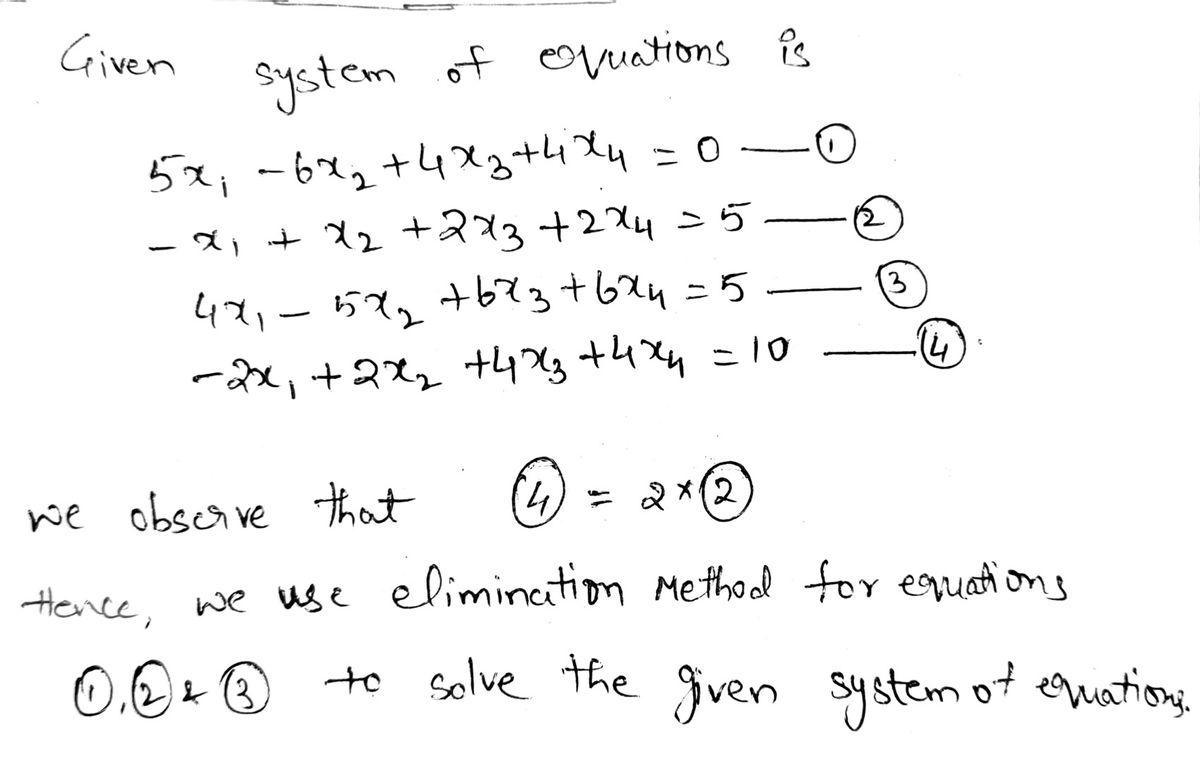 Given system of equations is
5x₁ - 6x₂ + 4x₃ + 4x₄ = 0 — ①
- x₁ + x₂ + 2x₃ + 2x₄ = 5 — ②
4x₁ - 5x₂ + 6x₃ + 6x₄ = 5 — ③
-2x₁ + 2x₂ + 4x₃ + 4x₄ = 10 — ④
we observe that ④ = 2 × ②
Hence, we use elimination Method for equations
①, ② & ③ to solve the given system of equations.